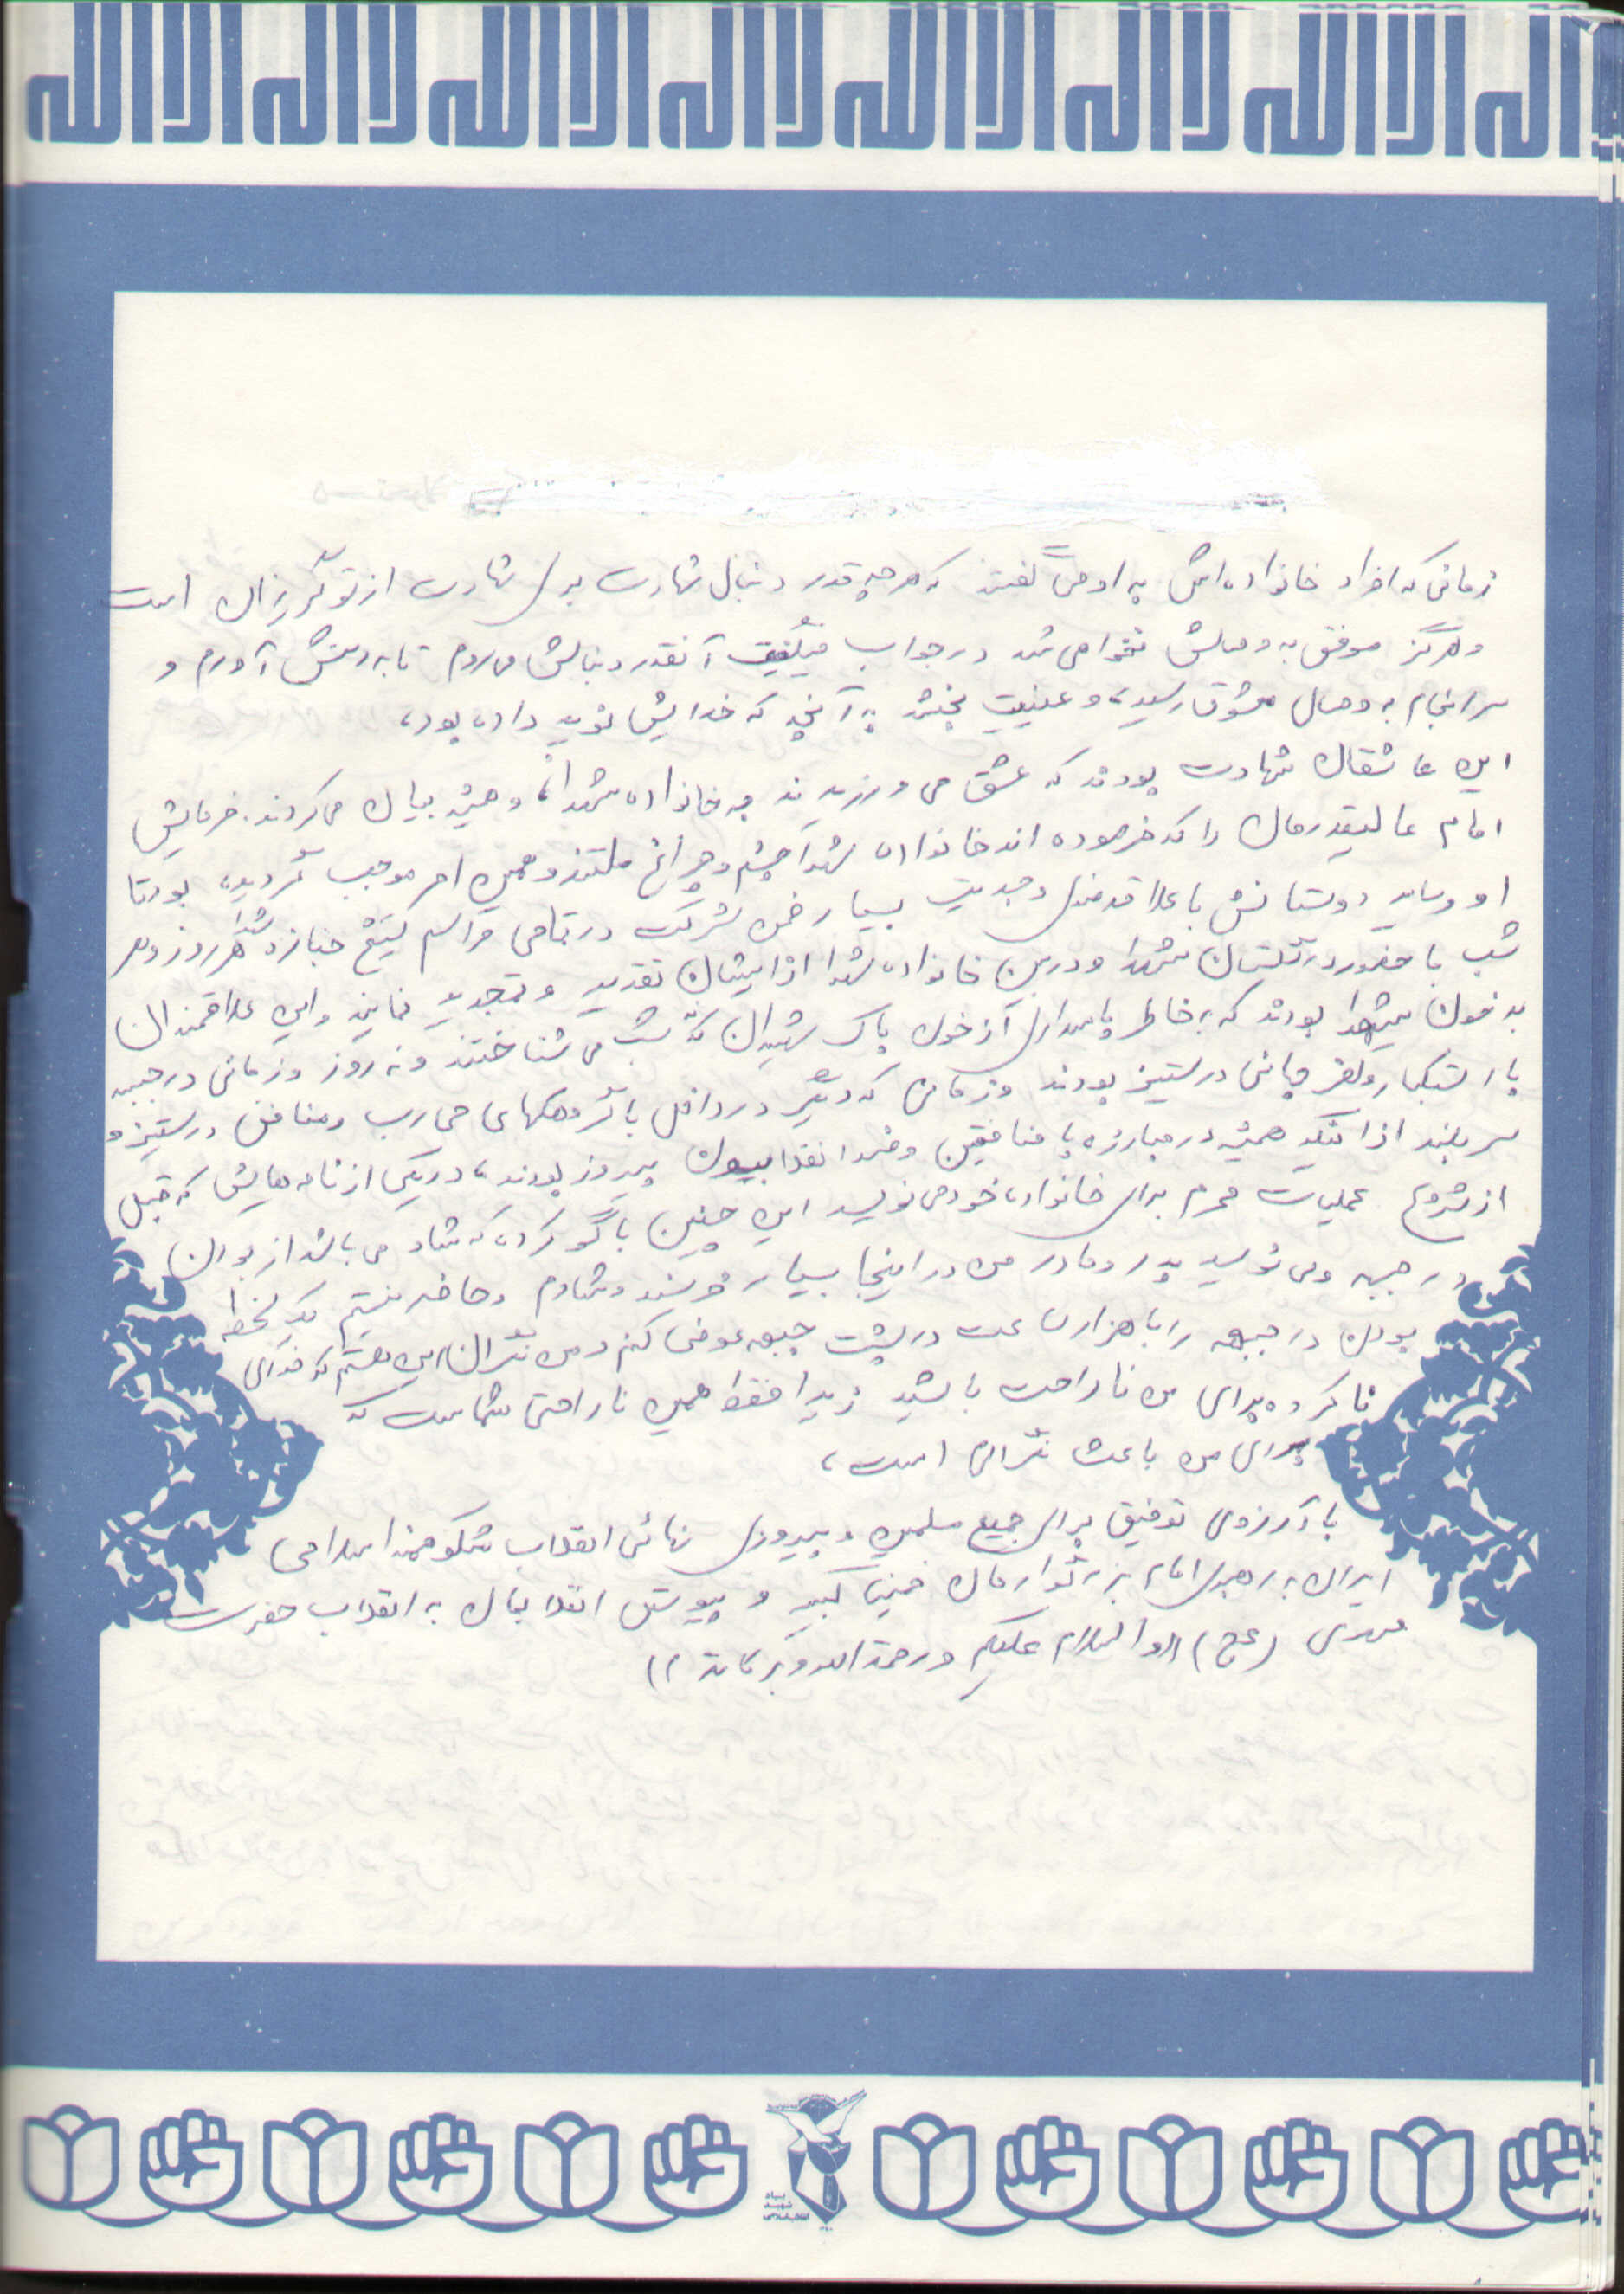 لااله الاالله لااله الاالله لااله الاالله لااله الاالله
زمانی که افراد خانواده اش به او می گفتند که هر چه قدر دنبال شهادت بروی شهادت از تو گریزان است
و هرگز موفق به وصالش نخواهی شد در جواب میگفت آنقدر دنبالش می روم تا به دستش آورم و
سرانجام به وصال معشوق رسید، و عینیت بخشد به آنچه که خدایش نوید داده بود،
این عاشقان شهادت بودند که عشق می ورزیدند به خانواده شهدا، و همیشه بیان می کردند. فرمایش
امام عالیقدرمان را که فرموده اند خانواده شهدا چشم و چراغ ملتند و همین امر موجب گردیده بود تا
او و سایر دوستانش با علاقه مندی و جدیت بسیار ضمن شرکت در تمامی مراسم تشیع جنازه شهدا هر روز و هر
شب با حضور در گلستان شهدا و در بین خانواده شهدا از ایشان تقدیر و تمجید نمایند و این علاقمندان
به خون شهدا بودند که به خاطر پاسداری از خون پاک شهیدان نه شب می شناختند و نه روز و زمانی در جبهه
با استکبار و کفر جهانی در ستیز بودند و زمانی که دیگر در داخل با گروهکهای محارب و منافق در ستیز و
سربلند از اینکه همیشه در مبارزه با منافقین و ضد انقلابیون پیروز بودند، در یکی از نامه هایش که قبل
از شروع عملیات محرم برای خانواده خود می نویسد این چنین بازگو کرده که شاد می باشد از بودن
در جبهه و می نویسد پدر و مادر من در اینجا بسیار خرسند و شادم و حاضر نیستم یک لحظه
بودن در جبهه را با هزار ساعت در پشت جبهه عوض کنم و من نگران این هستم که خدای
ناکرده برای من ناراحت باشید زیرا فقط همین ناراحتی شماست که
برای من باعث نگرانی است،
با آرزوی توفیق برای جمیع مسلمین و پیروزی نهائی انقلاب شکوهمند اسلامی
ایران به رهبری امام بزرگوارمان خمینی کبیر و پیوستن انقلابمان به انقلاب حضرت
مهدی (عج) ((والسلام علیکم و رحمة الله و برکاته))
بنیاد
شهید
انقلاب اسلامی